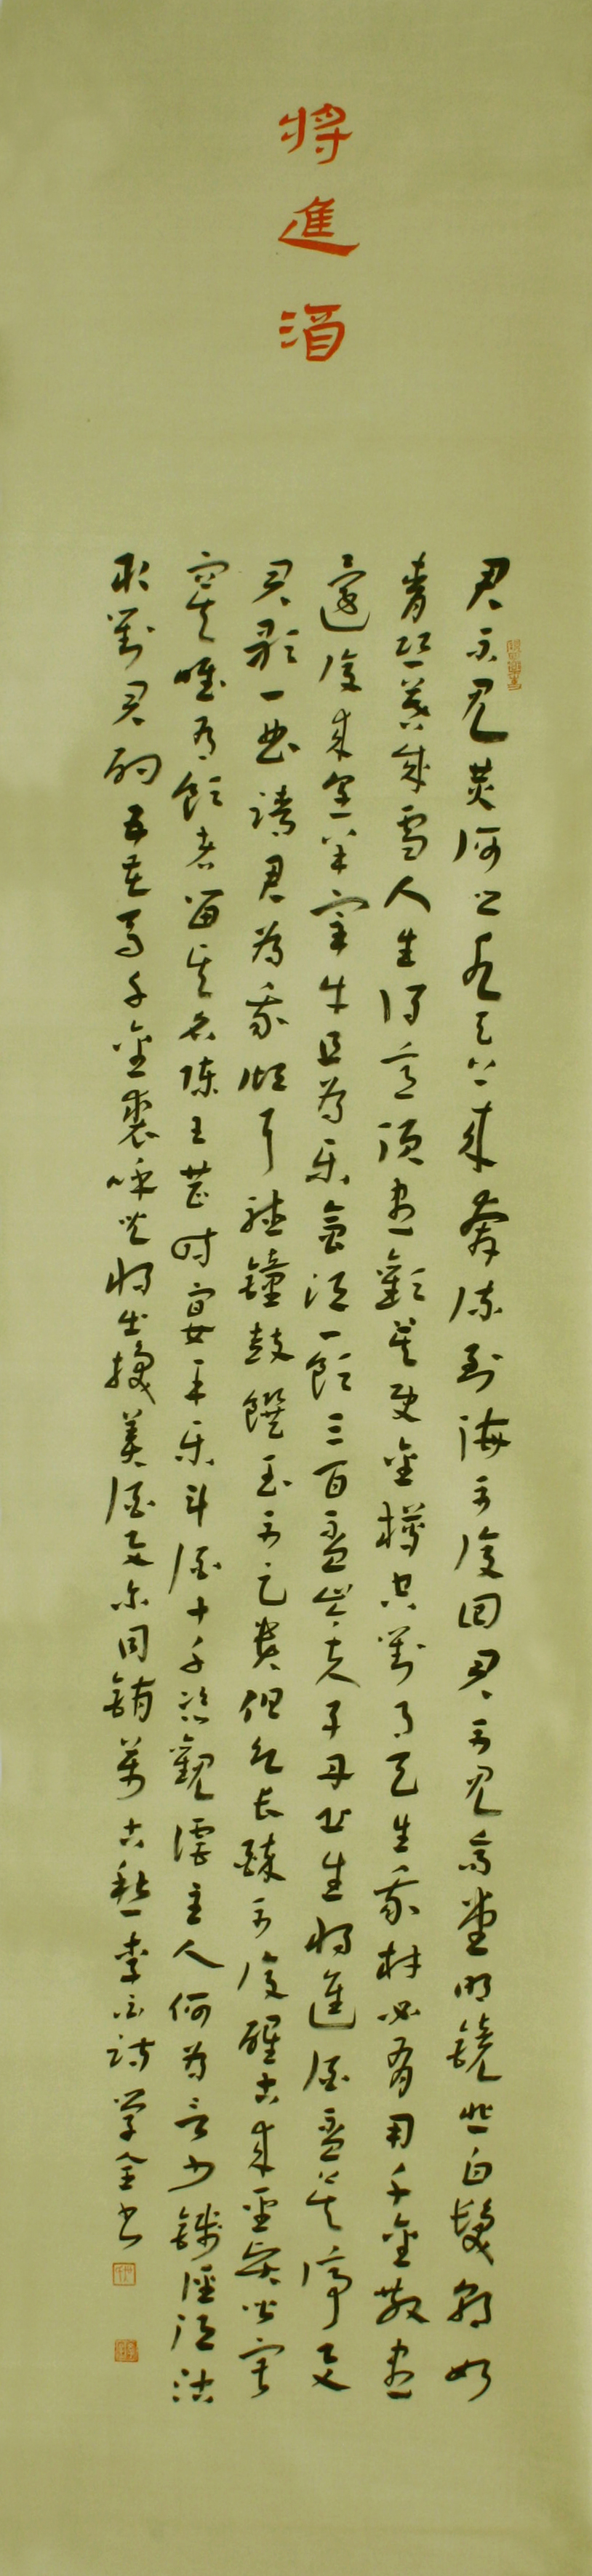 將進酒
君不見黃河之水天上來奔流到海不復回君不見高堂明鏡悲白髮朝如
青絲暮成雪人生得意須盡歡莫使金樽空對月天生我材必有用千金散盡
還復來烹羊宰牛且為樂會須一飲三百盃岑夫子丹丘生將進酒盃莫停與
君歌一曲請君為我傾耳聽鐘鼓饌玉不足貴但願長醉不復醒古來聖賢皆寂
寞唯有飲者留其名陳王昔時宴平樂斗酒十千恣歡謔主人何為言少錢徑須沽
取對君酌五花馬千金裘呼兒將出換美酒與爾同銷萬古愁李白詩學全書